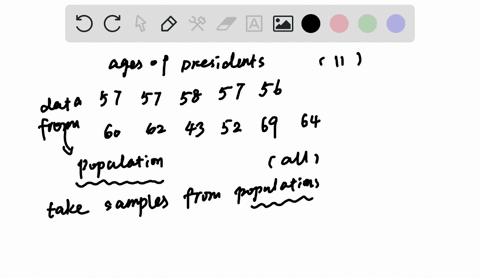 ages of presidents (11)
57 57 58 57 56
data from
60 62 43 52 69 64
population (all)
take samples from populations